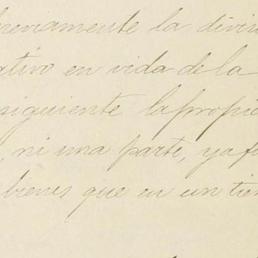 previamente la divi
ativo en vida de la
siguiente la propie
, ni una parte, ya f
bienes que en un tie